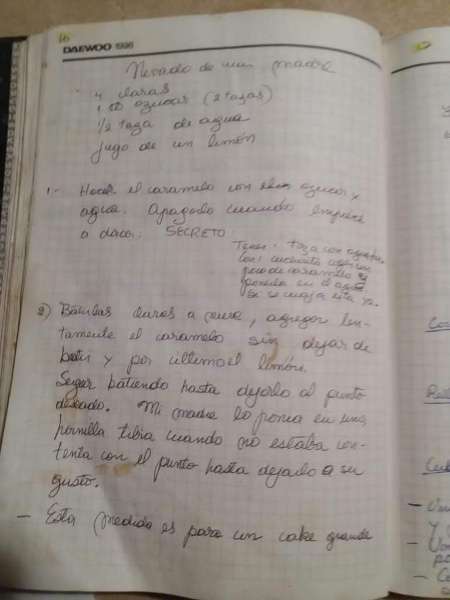 16
DAEWOO 1996
Nevado de mi madre
4 claras
1 lb azucar (2 tazas)
1/2 taza de agua
jugo de un limón
1.- Hacer el caramelo con azucar y
agua. Apagado cuando empiece
a dorar. SECRETO
Tener taza con agua
con cucharita
poco de caramelo
ponerla en el agua
si se cuaja esta ya.
2) Batir las claras a nieve, agregar len-
tamente el caramelo sin dejar de
batir y por ultimo el limón.
Seguir batiendo hasta dejarlo al punto
deseado. Mi madre lo ponia en una
hornilla tibia cuando no estaba con-
tenta con el punto hasta dejarlo a su
gusto.
- Esta medida es para un cake grande